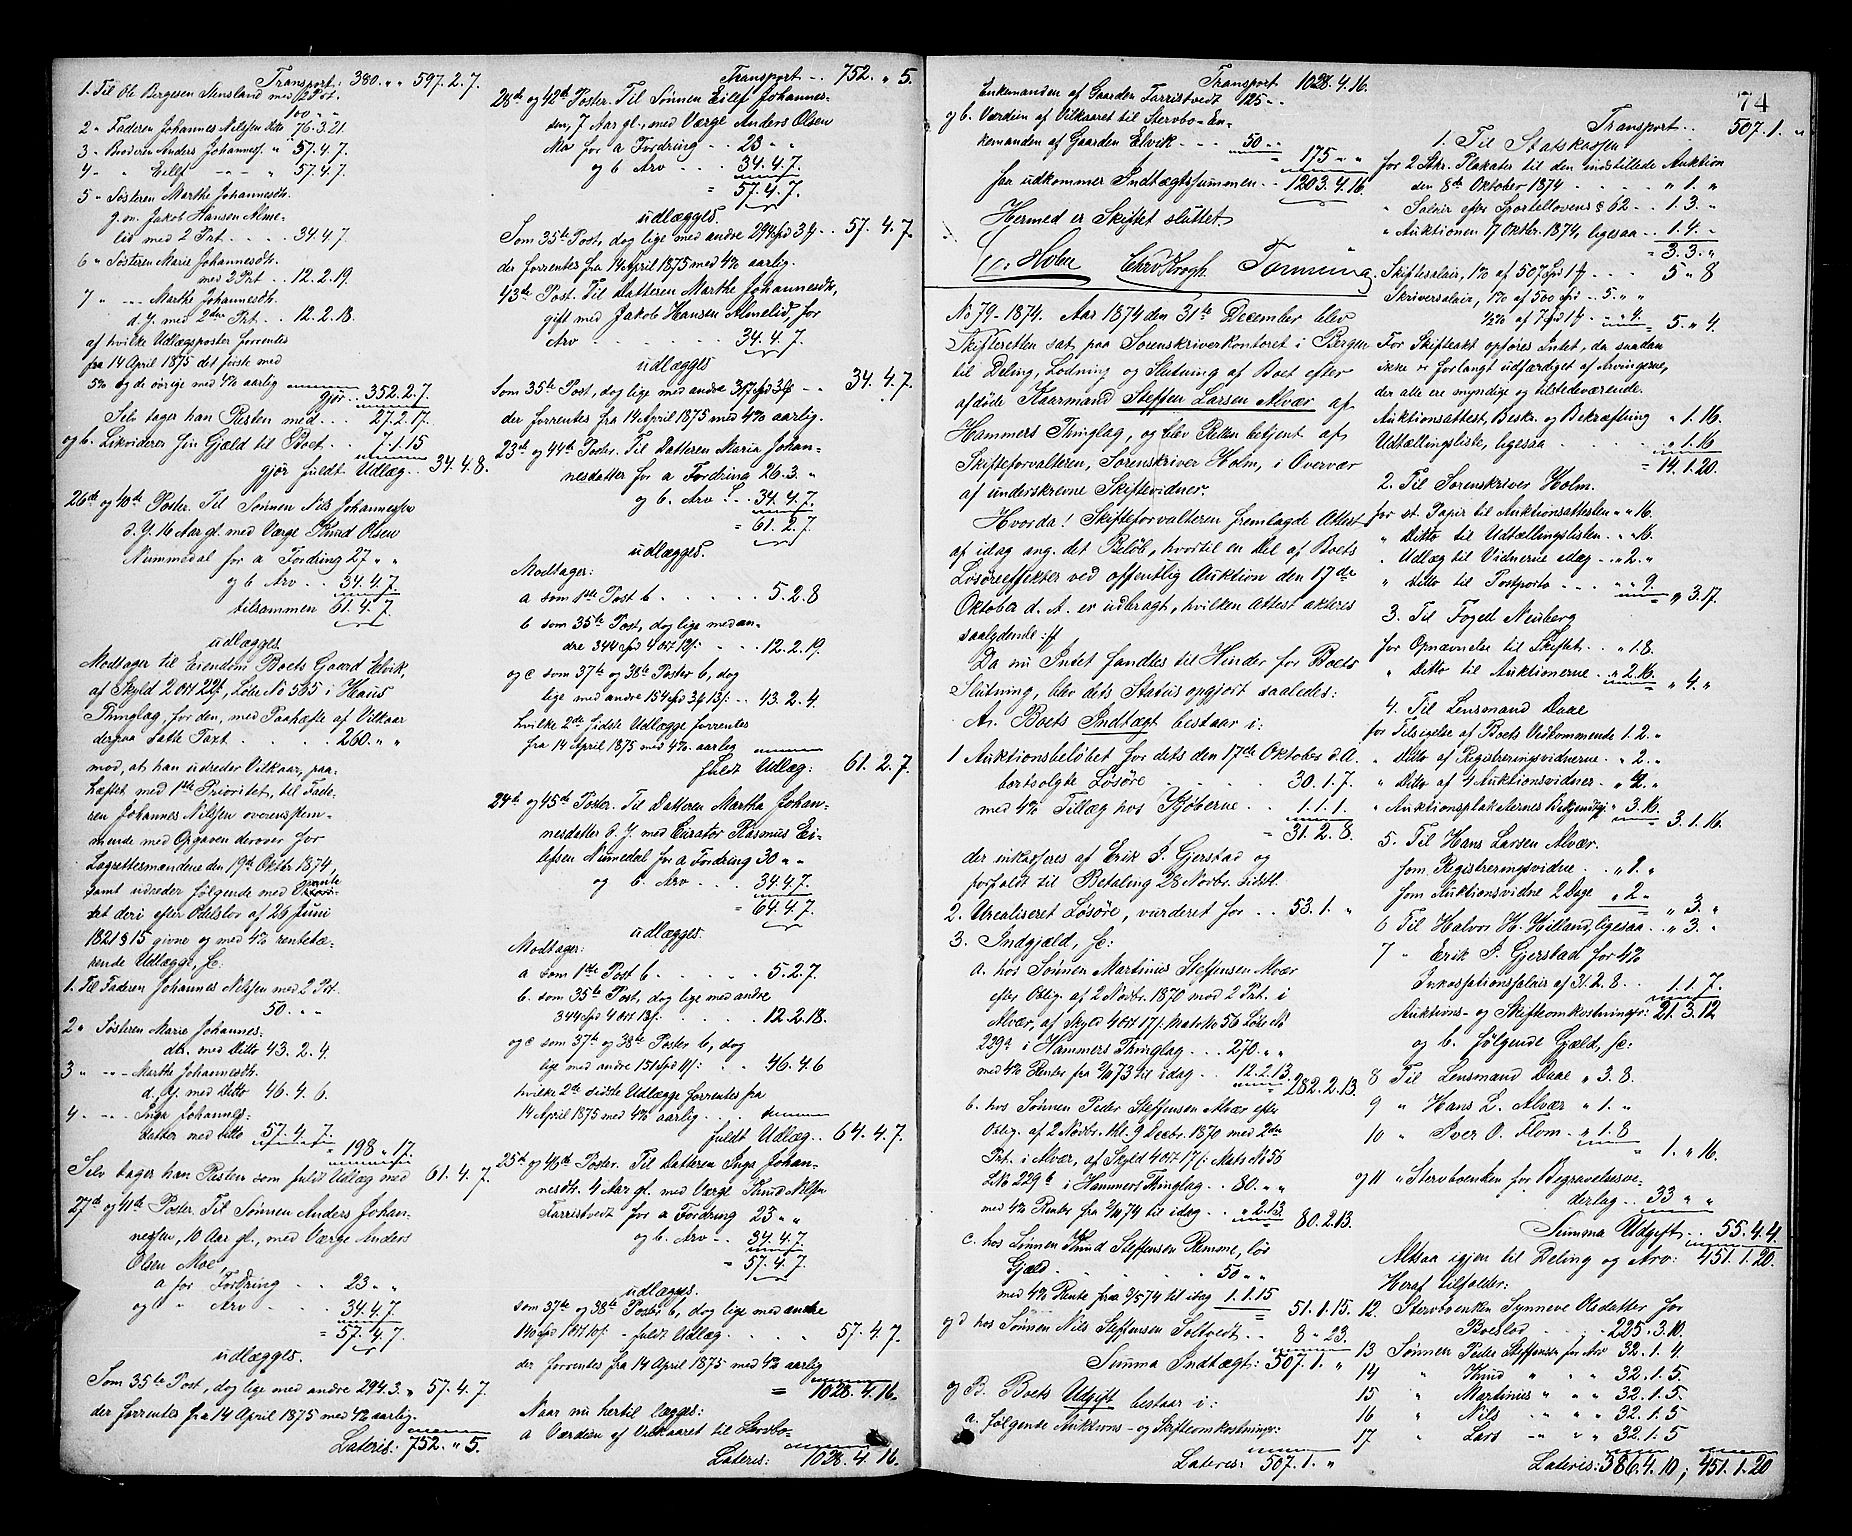 Transport: 380. " " 597. 2. 7.
1. Til Ole Bergesen Stensland med 1ste Prt.
100 " "
2 " Faderen Johannes Nilsen Ditto 76. 3. 21.
3 " Broderen Anders Johanness. " 57. 4. 7.
4 " " Eilef - " - " 57. 4. 7.
5 " Søsteren Marthe Johannesdt.
g. m. Jakob Hansen Alme-
lid med 2 Prt. . . . . 34. 4. 7.
6 " Søsteren Marie Johannesdt.
med 2 Prt . . 12. 2. 19.
7 " - " - Marthe Johannesdt.
d. Y. med 2den Prt. . . 12. 2. 18.
af hvilke Udlægsposter forrentes
fra 14 April 1875 det første med
5% og de øvrige med 4% aarlig
gjør . . 352. 2. 7.
Selv tager han Resten med . . . 27. 2. 17.
og b. Likviderer sin Gjæld til Boet . . 7. 1. 15
gjør fuldt Udlæg . . 34. 4. 8.
26de og 40de Poster. Til Sønnen Nils Johannessen
d. Y. 16 Aar gl. med Værge Knud Olsen
Nummedal for a Fordring 27 " "
og b Arv . . 34. 4. 7.
tilsammen 61. 4. 7.
udlægges.
Modtager til Eiendom Boets Gaard Elvik,
af Skyld 2 ort 22 s, Løbe No 565 i Haus
Thinglag, for den, med Paahæfte af Vilkaar
derpaa satte Taxt . . . . . 260. " "
mod, at han udreder Vilkaar, paa-
hæftet med 1ste Prioritet, til Fade-
ren Johannes Nilsen overensstem-
mende med Opgaven derover for
Lagrettesmændene den 19de Oktbr 1874,
samt udreder følgende med Prioritet
deri efter Odelslov af 26 Juni
1821 § 15 givne og med 4% rentebæ-
rende Udlægge, sc:
1. Til Faderen Johannes Nilsen med 2 Prt.
50. " "
2 " Søsteren Marie Johannes-
dtr. med Ditto 43. 2. 4.
3 " - " - Marthe Johannesdt.
d. Y. med Ditto 46. 4. 6.
4 " - " - Inga Johannes-
datter med Ditto 57. 4. 7.
198 " 17.
Selv tager han Resten som fuldt Udlæg med 61. 4. 7.
27de og 41de Poster. Til Sønnen Anders Johan-
nessen, 10 Aar gl., med Værge Anders
Olsen Moe,
a for Fordring . . 23 " "
og " Arv . . . 34. 4. 7.
= 57. 4. 7.
udlægges.
Som 35te Post, dog lige med andre 294. 3. " 57. 4. 7.
der forrentes fra 14 April 1875 med 4% aarlig.
Lateris: 752. " 5.
Transport . . 752. " 5.
28de og 42de Poster. Til Sønnen Eilef Johannes-
sen, 7 Aar gl., med Værge Anders Olsen
Moe for a Fordring . . 23 " "
og b Arv . . . 34. 4. 7.
= 57. 4. 7.
udlægges
Som 35te Post, dog lige med andre 294 spd 3 ß . . 57. 4. 7.
der forrentes fra 14 April 1875 med 4% aarlig.
43de Post. Til Datteren Marthe Johannesdt.,
gift med Jakob Hansen Almelid, for
Arv . . . . . . 34. 4. 7.
udlægges
Som 35te Post, dog lige med andre 317 spd 3 ß . . 34. 4. 7.
der forrentes fra 14 April 1875 med 4% aarlig.
23de og 44de Poster. Til Datteren Maria Johan-
nesdatter for a Fordring 26. 3. "
og b. Arv . . 34. 4. 7.
= 61. 2. 7.
udlægges.
Modtager:
a som 1ste Post b . . . . . . 5. 2. 8
b som 35te Post, dog lige med an-
dre 344 spd 4 ort 12 s: . . . 12. 2. 19.
og c som 37te og 38te Poster b, dog
lige med andre 154 spd 3 ß 13 s: . . 43. 2. 4.
hvilke 2de sidste Udlægge forrentes
fra 14 April 1875 med 4% aarlig
fuldt Udlæg: 61. 2. 7.
24de og 45de Poster. Til Datteren Martha Johan-
nesdatter d. Y. med Curator Rasmus Ei-
lefsen Nummedal for a Fordring 30 " "
og b. Arv . . . 34. 4. 7.
= 64. 4. 7.
udlægges.
Modtager:
a som 1ste Post b . . . . . . 5. 2. 7.
b. som 35te Post, dog lige med andre
344 spd 4 ort 13 s: . . . . . 12. 2. 18.
og c som 37te og 38te Poster b, dog
lige med andre 151 spd 11 s: . . 46. 4. 6
hvilke 2de sidste Udlægge forrentes fra
14 April 1875 med 4% aarlig . . .
fuldt Udlæg . . 64. 4. 7.
25de og 46de Poster. Til Datteren Inga Johan-
nesdt. 4 Aar gl. med Værge Knud Nilsen
Tarristvedt for a Fordring 23 " "
og b. Arv . . 34. 4. 7.
= 57. 4. 7.
udlægges.
som 37te og 38te Poster b, dog lige med andre
140 spd 1 ort 10 s: - fuldt Udlæg . . . . 57. 4. 7.
der forrentes fra 14 April 1875 med 4% aarlig
= 1028. 4. 16.
Naar nu hertil lægges:
a Værdien af Vilkaaret til Stervbo-
Lateris: 1028. 4. 16.
Transport 1028. 4. 16.
Enkemanden af Gaarden Tarristvedt 125 " .
og b. Værdien af Vilkaaret til Stervbo-En-
kemanden af Gaarden Elvik . . 50 " .
175 " "
saa udkommer Indtægtssummen . . 1203. 4. 16.
Hermed er Skiftet sluttet.
Holm Chrs Krogh Tonning
No 79 - 1874. Aar 1874 den 31te December blev
Skifteretten sat paa Sorenskriverkontoret i Bergen
til Deling, Lodning og Slutning af Boet efter
afdøde Kaarmand Steffen Larsen Alvær af
Hammers Thinglag, og blev Retten betjent af
Skifteforvalteren, Sorenskriver Holm, i Overvær
af underskrevne Skiftevidner.
Hvorda! Skifteforvalteren fremlagde Attest
af idag ang. det Beløb, hvortil en Del af Boets
Løsøreeffekter ved offentlig Auktion den 17de
Oktober d. A. er udbragt, hvilken Attest akteres
saalydende: ff
Da nu Intet fandtes til Hinder for Boets
Slutning, blev dets Status opgjort saaledes:
A. Boets Indtægt bestaar i:
1 Auktionsbeløbet for dets den 17de Oktober d. A.
bortsolgte Løsøre . . . . 30. 1. 7.
med 4% Tillæg hos Kjøberne . . 1. 1. 1.
= 31. 2. 8.
der inkasseres af Erik I. Gjerstad og
forfaldt til Betaling 28 Novbr. sidstl.
2. Urealiseret Løsøre, vurderet for . . 53. 1. "
3. Indgjæld, sc:
a. hos Sønnen Martinus Steffensen Alvær
efter Oblig. af 2 Novbr. 1870 mod 2 Prt. i
Alvær, af Skyld 4 ort 17 s: Mats No 56 Løbe No
229a i Hammers Thinglag . . . 270. " "
med 4% Renter fra 2/11 73 til idag . . 12. 2. 13.
282. 2. 13.
b. hos Sønnen Peder Steffensen Alvær efter
Oblig. af 2 Novbr. thl. 9 Decbr. 1870 med 2den
Prt. i Alvær, af Skyld 4 ort 17 s: Mats No 56
LNo 229a i Hammers Thinglag . . 80. " "
med 4% Renter fra 2/11 74 til idag . . " 2. 13.
80. 2. 13.
c. hos Sønnen Knud Steffensen Remme, løs
Gjæld . . . . . . 50 " "
med 4% Rente fra 2/5 74 til idag 1. 1. 15
51. 1. 15.
og d hos Sønnen Nils Steffensen Soltvedt . . 8 " 23.
Summa Indtægt: 507. 1. "
og B. Boets Udgift bestaar i:
a. følgende Auktions- og Skifteomkostninger:
Lateris: 507. 1. "
74
Transport . . 507. 1. "
1. Til Statskassen
for 2 Stkr. Plakater til den indstillede Auktion
den 8de Oktober 1874 . . . . . " 1. "
" Salair efter Sportellovens § 62 . . 1. 3. "
" Auktionen 17 Oktbr. 1874, ligesaa . . 1. 4. "
= 3. 3. "
Skiftesalair, 1% af 507 spd 1 ß . . . 5 " 8
Skriversalair, 1% af 500 spd . . 5. " "
1/2% af 7 spd 1 ß " " 4.
5. " 4.
For Skifteakt opføres Intet, da saadan
ikke er forlangt udfærdiget af Arvingerne,
der alle ere myndige og tilstedeværende.
Auktionsattest, Beskr. og Bekræftning " 1. 16.
Udtællingsliste, ligesaa . . . . " 1. 16
= 14. 1. 20.
2. Til Sorenskriver Holm.
for st. Papir til Auktionsattesten " " 16.
" Ditto til Udtællingslisten . . " " 16.
" Udlæg til Vidnerne idag . . " 2. "
" Ditto til Postporto . . . " " 9.
= " 3. 17.
3. Til Foged Neuberg
for Opnævnelse til Skiftet . . " 1. 8.
" Ditto til Auktionerne . . " 2. 16.
" 4. "
4. Til Lensmand Daae
for Tilsigelse af Boets Vedkommende 1. 2. "
" Ditto af Registreringsvidnerne . . " 2. "
" Ditto af 4 Auktionsvidner . . " 4. "
" Auktionsplakaternes Bekjendtgj. " 3. 16.
3. 1. 16.
5. Til Hans Larsen Alvær.
som Registreringsvidne . . " 1. "
som Auktionsvidne 2 Dage " 2 "
" 3. "
6 Til Halvor H. Hilland, ligesaa . . " 3. "
7 " Erik I. Gjerstad for 4%
Inkassationssalair af 31. 2. 8 . . 1. 1. 7.
Auktions- og Skifteomkostninger: 21. 3. 12
og b. følgende Gjæld, sc:
8 Til Lensmand Daae " 3. 8.
9 " Hans L. Alvær " 1. "
10 " Iver O. Flom . . " 1. 8
1. " 16.
og 11 " Stervboenken for Begravelsesve-
derlag . . 33 " "
Summa Udgift . . 55. 4. 4.
Altsaa igjen til Deling og Arv: 451. 1. 20.
Heraf tilfalder:
12. Stervboenken Synneve Olsdatter for
Boeslod . . . . 225. 3. 10.
13 Sønnen Peder Steffensen for Arv 32. 1. 4.
14 " Knud " " 32. 1. 5.
15 " Martinus " " " 32. 1. 5
16 " Nils - " " " 32. 1. 5
17 " Lars - " " " 32. 1. 5
Lateris: 386. 4. 10; 451. 1. 20